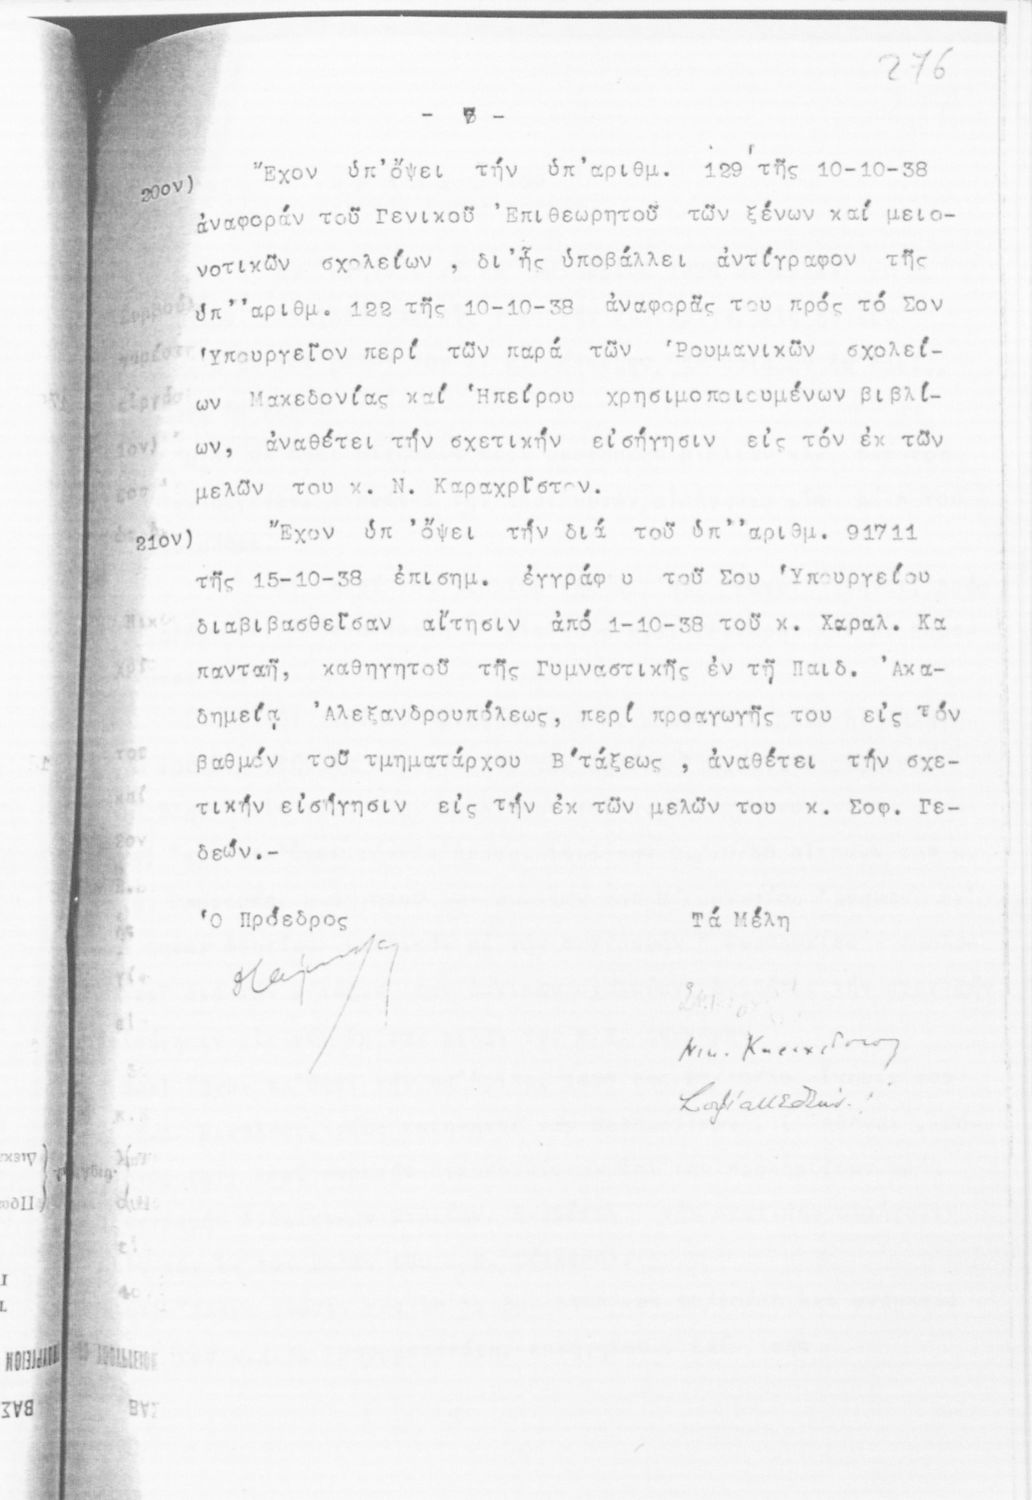 276
- 7 -
20ον) Ἔχον ὑπ'ὄψει τήν ὑπ'αριθμ. 129 τῆς 10-10-38
ἀναφοράν τοῦ Γενικοῦ Ἐπιθεωρητοῦ τῶν ξένων καί μειο-
νοτικῶν σχολείων , δι'ἧς ὑποβάλλει ἀντίγραφον τῆς
ὑπ''αριθμ. 122 τῆς 10-10-38 ἀναφορᾶς του πρός τό Σον
Ὑπουργεῖον περί τῶν παρά τῶν Ῥουμανικῶν σχολεί-
ων Μακεδονίας καί Ἠπείρου χρησιμοποιουμένων βιβλί-
ων, ἀναθέτει τήν σχετικήν εἰσήγησιν εἰς τόν ἐκ τῶν
μελῶν του κ. Ν. Καραχρῖστον.
21ον) Ἔχον ὑπ 'ὄψει τήν διά τοῦ ὑπ''αριθμ. 91711
τῆς 15-10-38 ἐπισημ. ἐγγράφ υ τοῦ Σου Ὑπουργείου
διαβιβασθεῖσαν αἴτησιν ἀπό 1-10-38 τοῦ κ. Χαραλ. Κα
πανταῆ, καθηγητοῦ τῆς Γυμναστικῆς ἐν τῇ Παιδ. Ἀκα-
δημείᾳ Ἀλεξανδρουπόλεως, περί προαγωγῆς του εἰς τόν
βαθμόν τοῦ τμηματάρχου Β'τάξεως , ἀναθέτει τήν σχε-
τικήν εἰσήγησιν εἰς τήν ἐκ τῶν μελῶν του κ. Σοφ. Γε-
δεών.-
Ὁ Πρόεδρος Τά Μέλη
Νικ. Καραχρίστος